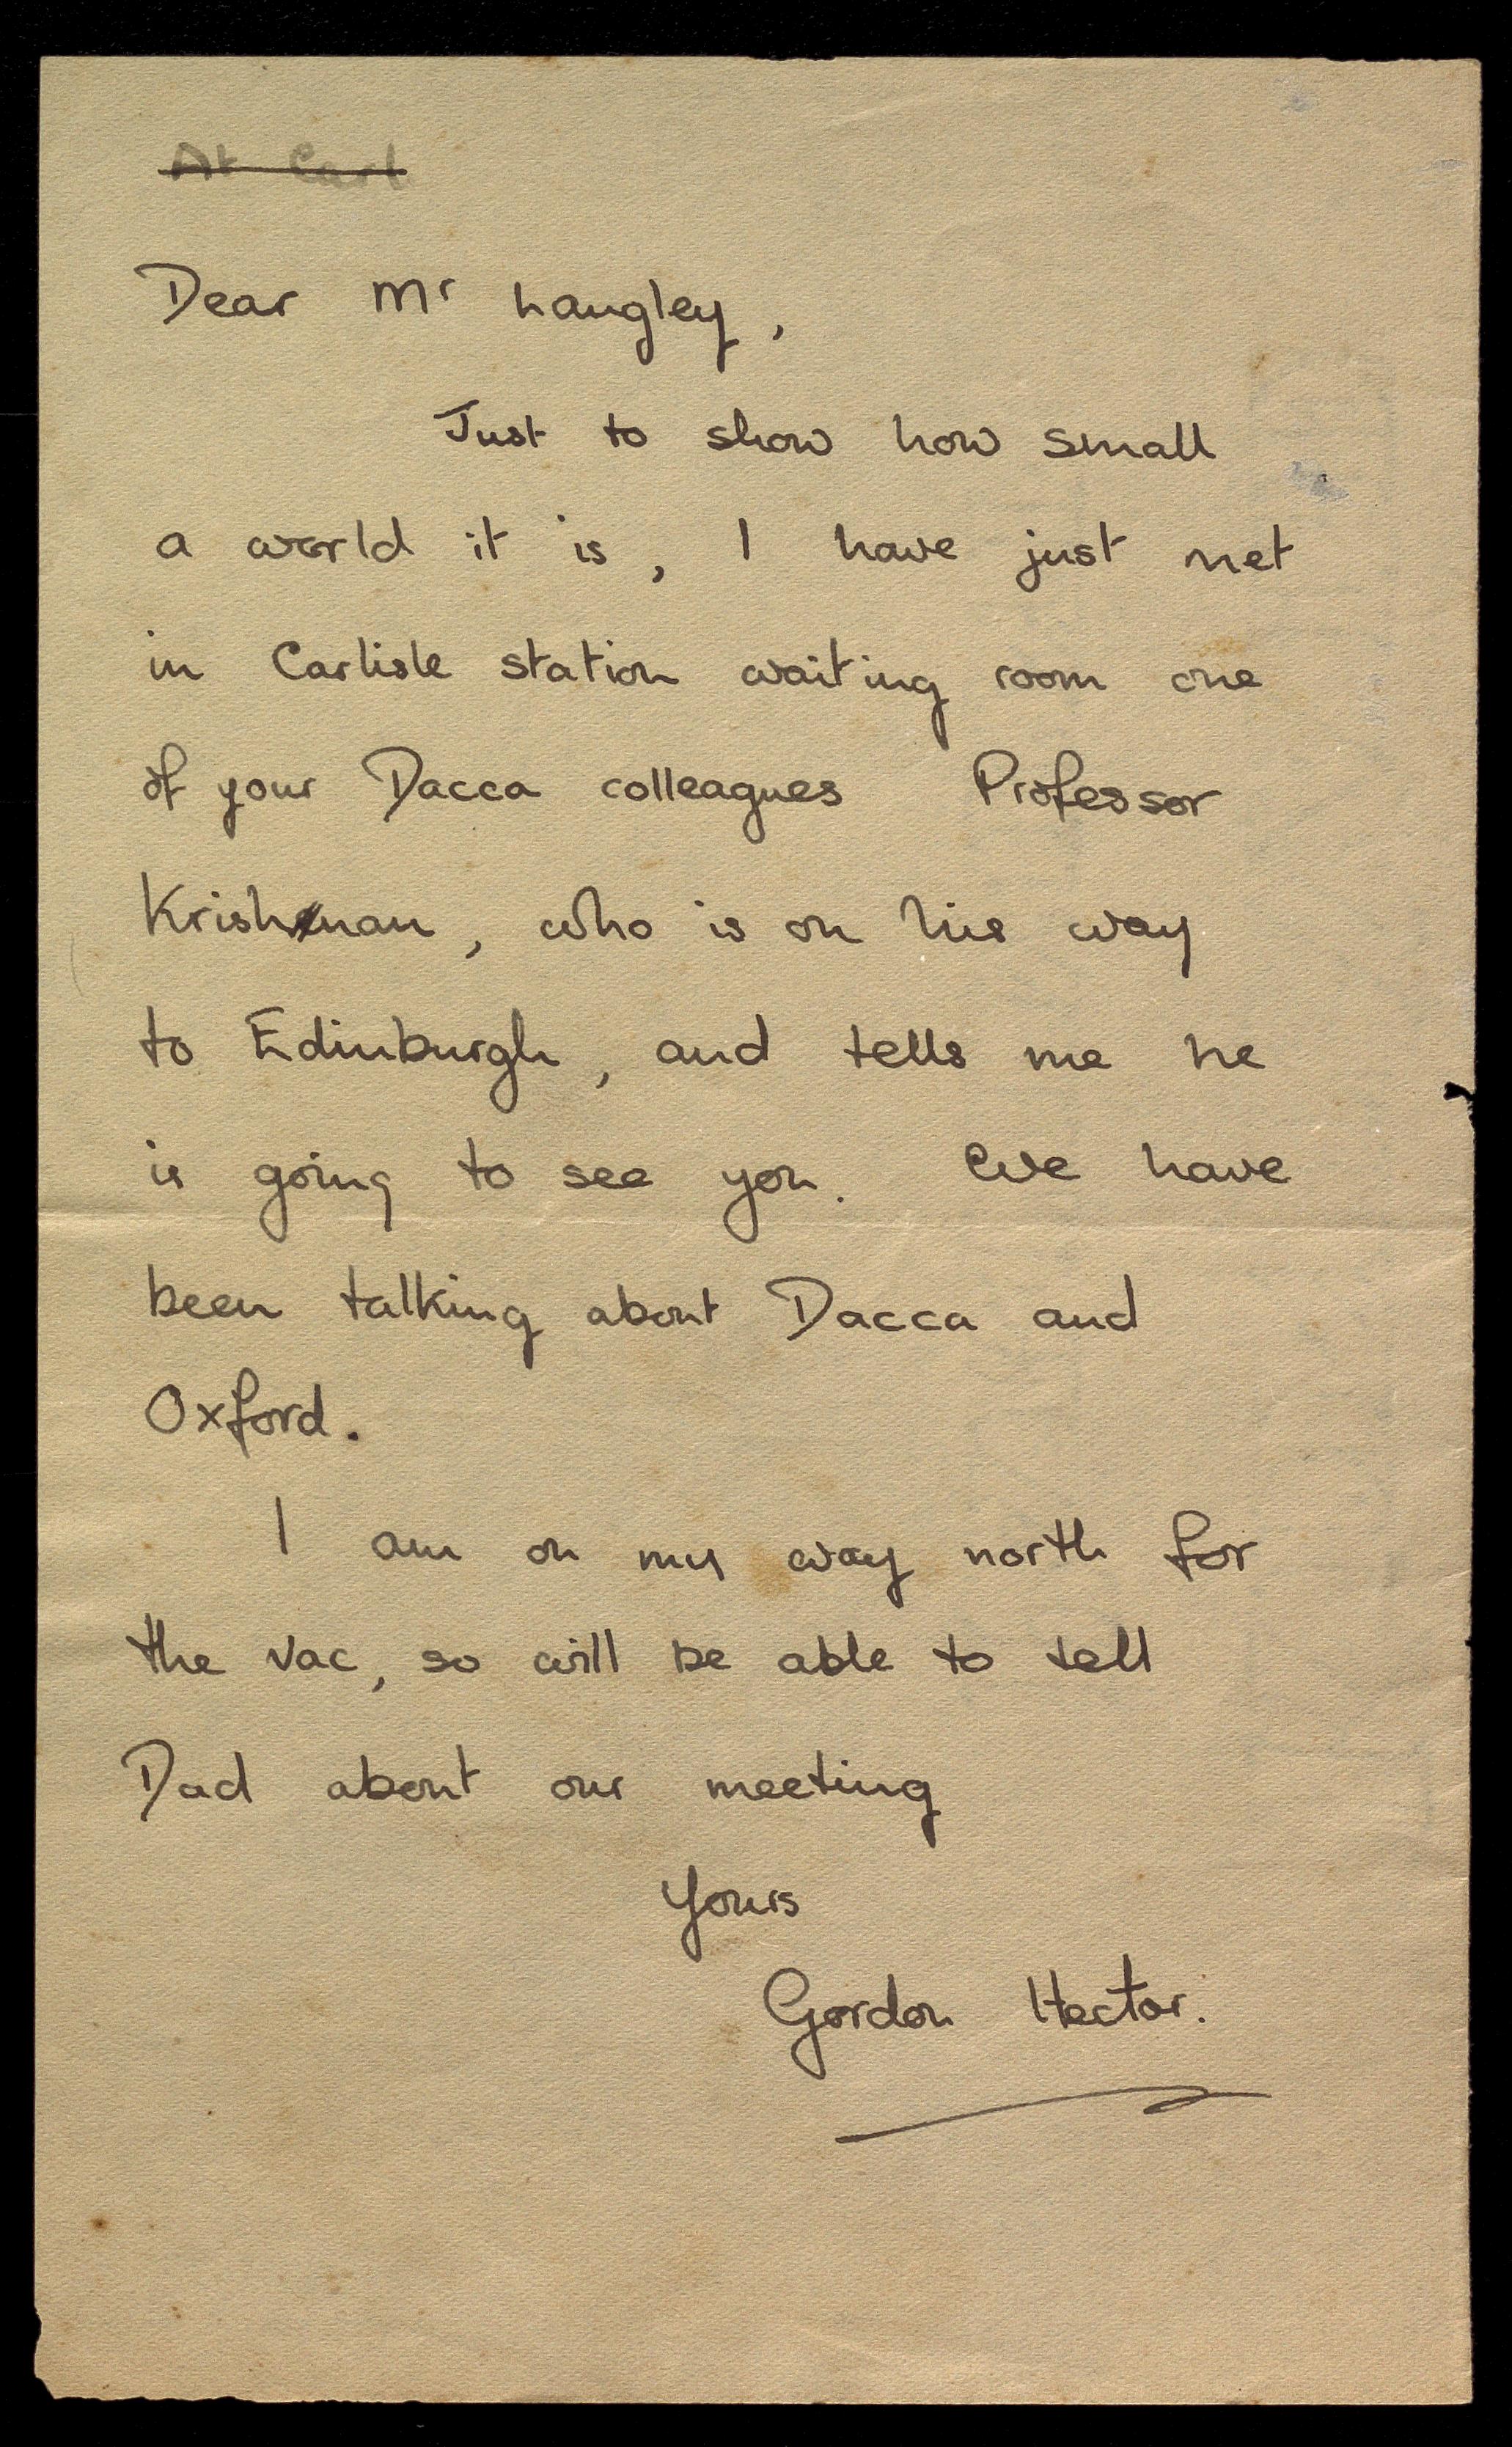 At Carl
Dear Mr Langley,
Just to show how small
a world it is, I have just met
in Carlisle station waiting room one
of your Dacca colleagues Professor
Krishnan, who is on his way
to Edinburgh, and tells me he
is going to see you. We have
been talking about Dacca and
Oxford.
I am on my way north for
the vac, so will be able to tell
Dad about our meeting
Yours
Gordon Hector.